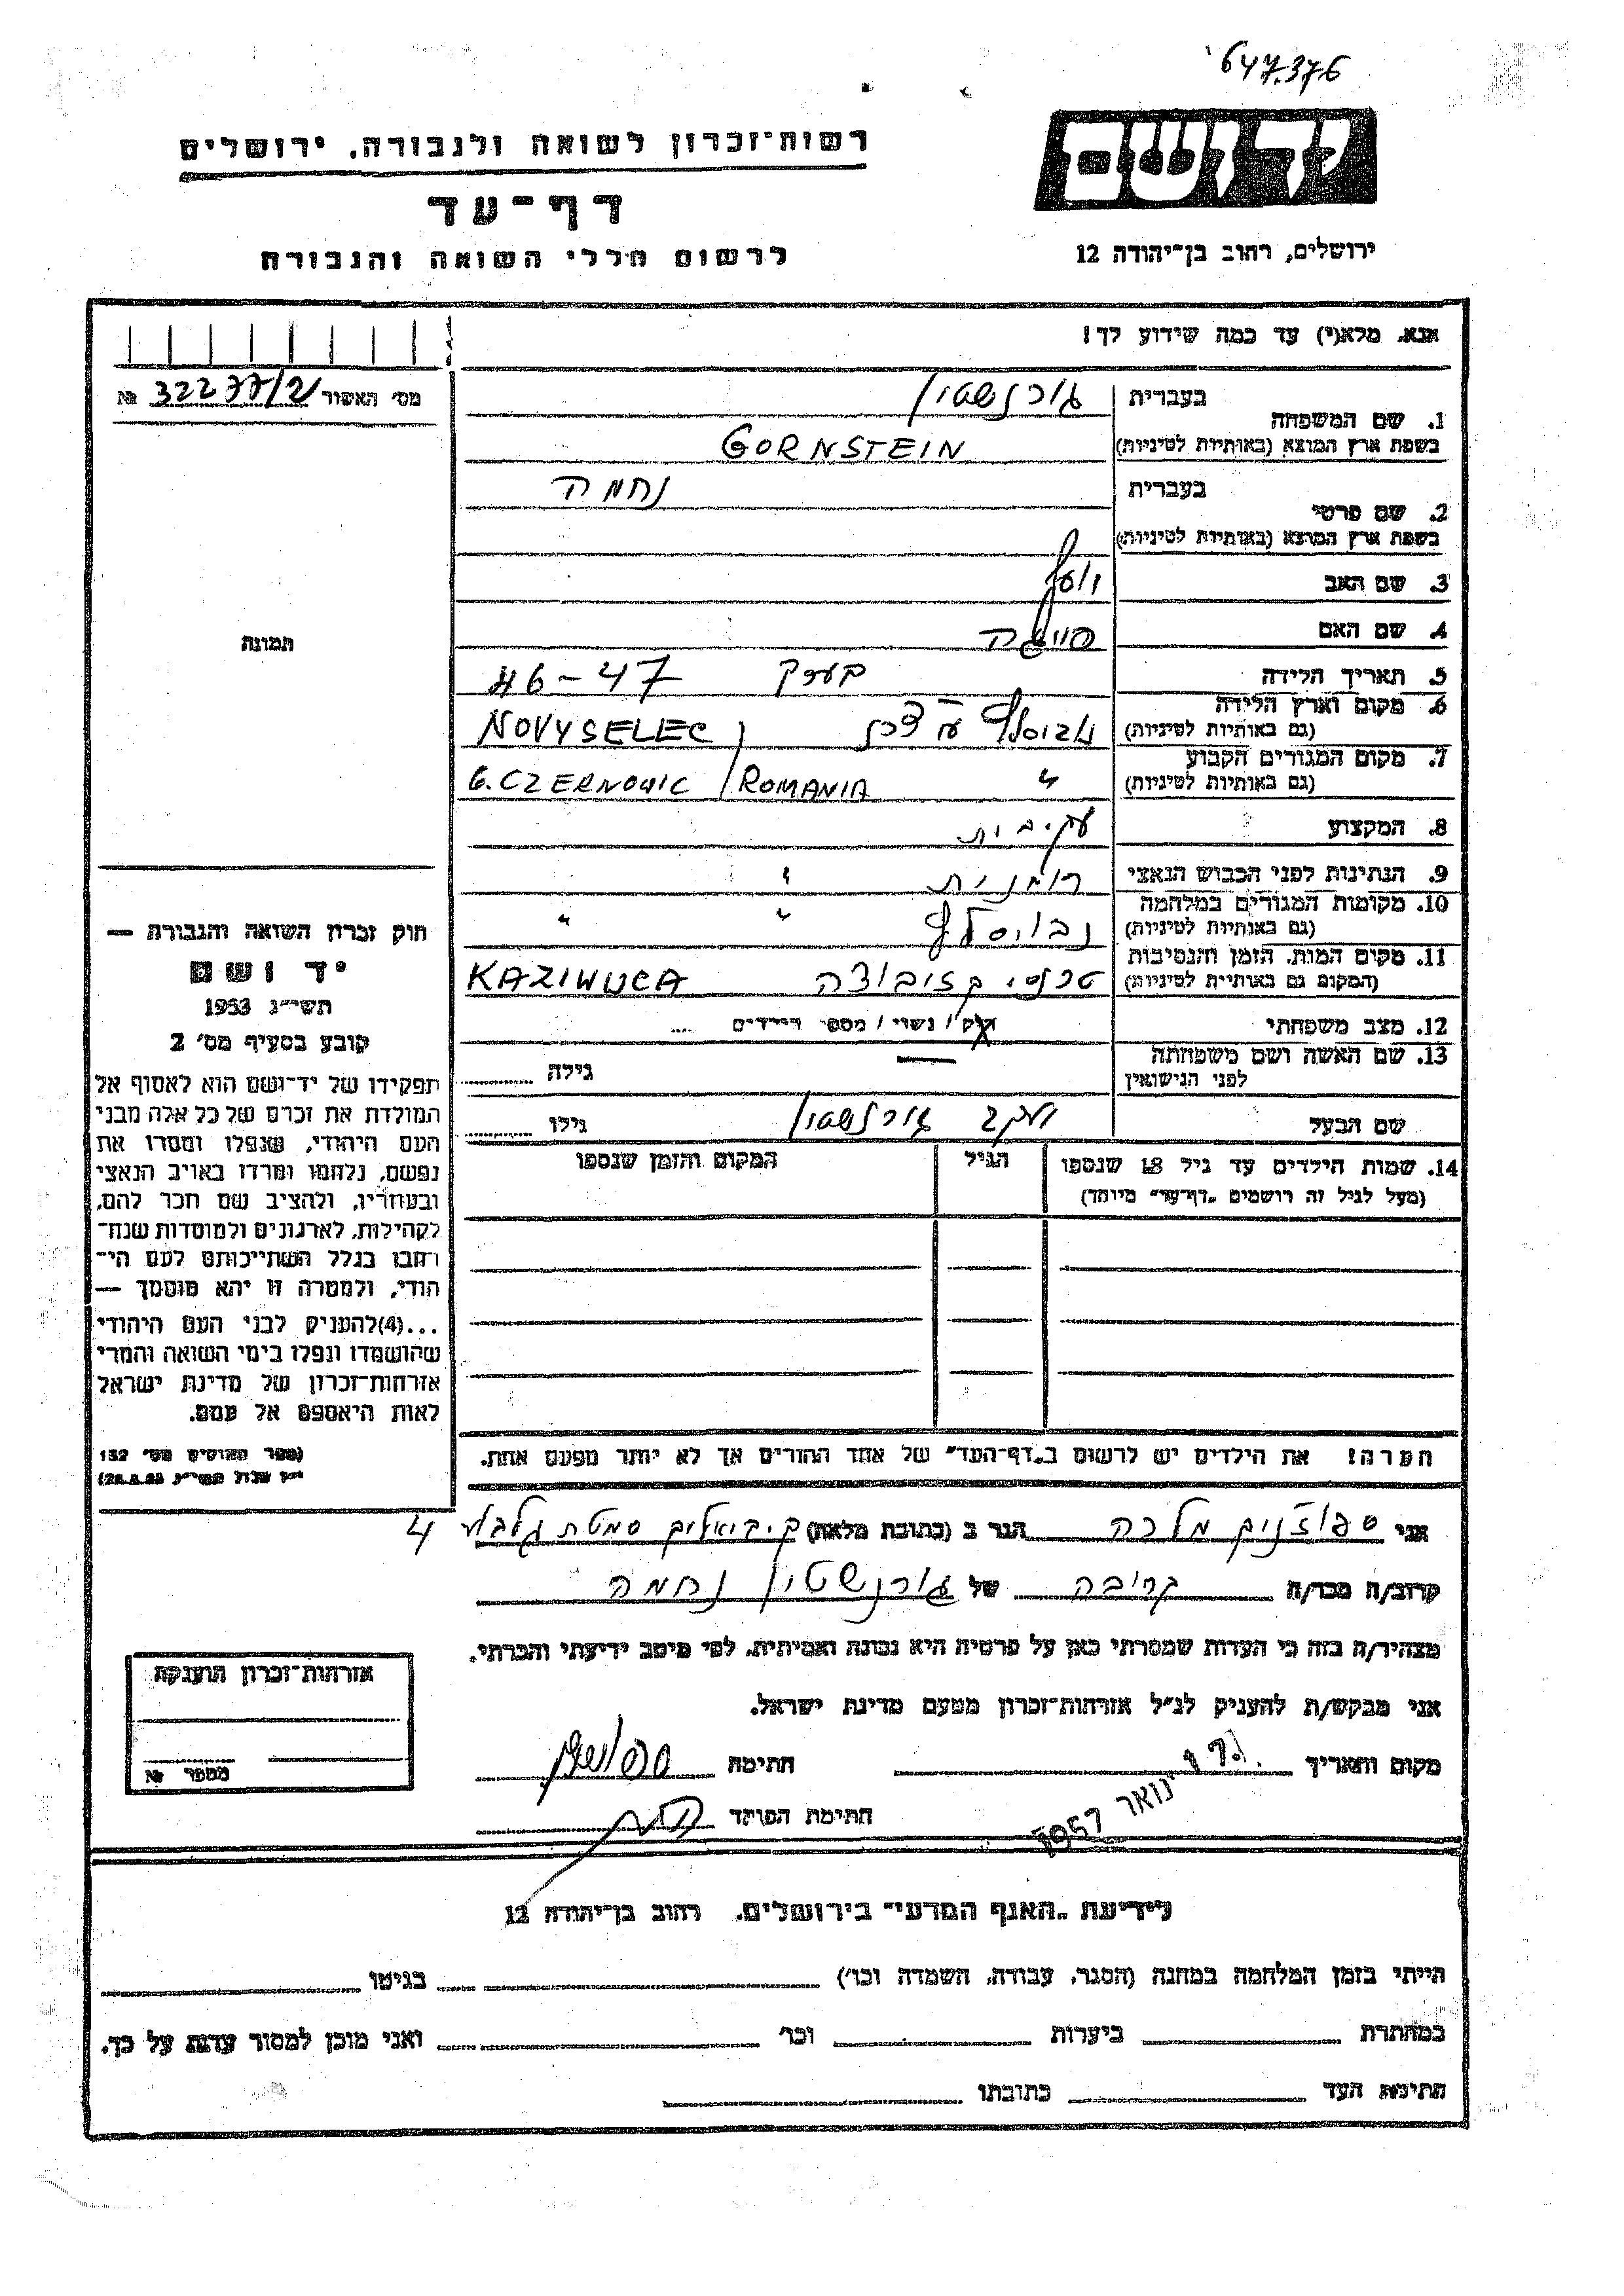 647.376
יד ושם
רשות־זכרון לשואה ולגבורה, ירושלים
דף־עד
לרשום חללי השואה והגבורה
ירושלים, רחוב בן־יהודה 12
אנא, מלא(י) עד כמה שידוע לך!
מס' האשור 32277/2 №
1. שם המשפחה בעברית גורנשטין
בשפת ארץ המוצא (באותיות לטיניות) GORNSTEIN
2. שם פרטי בעברית נחמה
בשפת ארץ המוצא (באותיות לטיניות)
3. שם האב יוסף
4. שם האם
5. תאריך הלידה בערך 46-47
6. מקום וארץ הלידה (גם באותיות לטיניות) NOVYSELEC
7. מקום המגורים הקבוע (גם באותיות לטיניות) " G. CZERNOWIC / ROMANIA
8. המקצוע עקיבית
9. הנתינות לפני הכבוש הנאצי רומנית "
10. מקומות המגורים במלחמה (גם באותיות לטיניות) " "
11. מקום המות, הזמן והנסיבות (המקום גם באותיות לטיניות) KAZIWUCA
12. מצב משפחתי רוק / נשוי / מספר הילדים ...
13. שם האשה ושם משפחתה לפני הנישואין — גילה
שם הבעל יעקב גורנשטין גילו
14. שמות הילדים עד גיל 18 שנספו (מעל לגיל זה רושמים „דף־עד" מיוחד) הגיל המקום והזמן שנספו
הערה! את הילדים יש לרשום ב„דף־העד" של אחד ההורים אך לא יותר מפעם אחת.
תמונה
חוק זכרון השואה והגבורה —
יד ושם
תשי"ג 1953
קובע בסעיף מס' 2
תפקידו של יד־ושם הוא לאסוף אל
המולדת את זכרם של כל אלה מבני
העם היהודי, שנפלו ומסרו את
נפשם, נלחמו ומרדו באויב הנאצי
ובעוזריו, ולהציב שם וזכר להם,
לקהילות, לארגונים ולמוסדות שנח־
רבו בגלל השתייכותם לעם הי־
הודי, ולמטרה זו יהא מוסמך —
...(4) להעניק לבני העם היהודי
שהושמדו ונפלו בימי השואה והמרי
אזרחות־זכרון של מדינת ישראל
לאות היאספם אל עמם.
(ספר החוקים מס' 132
י"ז אלול תשי"ג 28.8.53)
אני מלכה הגר ב (כתובת מלאה) ק. ביאליק סמטת גלבוע 4
קרוב/ה מכר/ה קרובה של גורנשטין נחמה
מצהיר/ה בזה כי העדות שמסרתי כאן על פרטיה היא נכונה ואמיתית, לפי מיטב ידיעתי והכרתי.
אני מבקש/ת להעניק לנ"ל אזרחות־זכרון מטעם מדינת ישראל.
מקום ותאריך ינואר 1957 חתימה
חתימת הפוקד
אזרחות־זכרון הוענקה
מספר №
לידיעת „האגף המדעי" בירושלים, רחוב בן־יהודה 12
הייתי בזמן המלחמה במחנה (הסגר, עבודה, השמדה וכו') בגיטו
במחתרת ביערות וכו' ואני מוכן למסור עדות על כך.
חתימת העד כתובתו